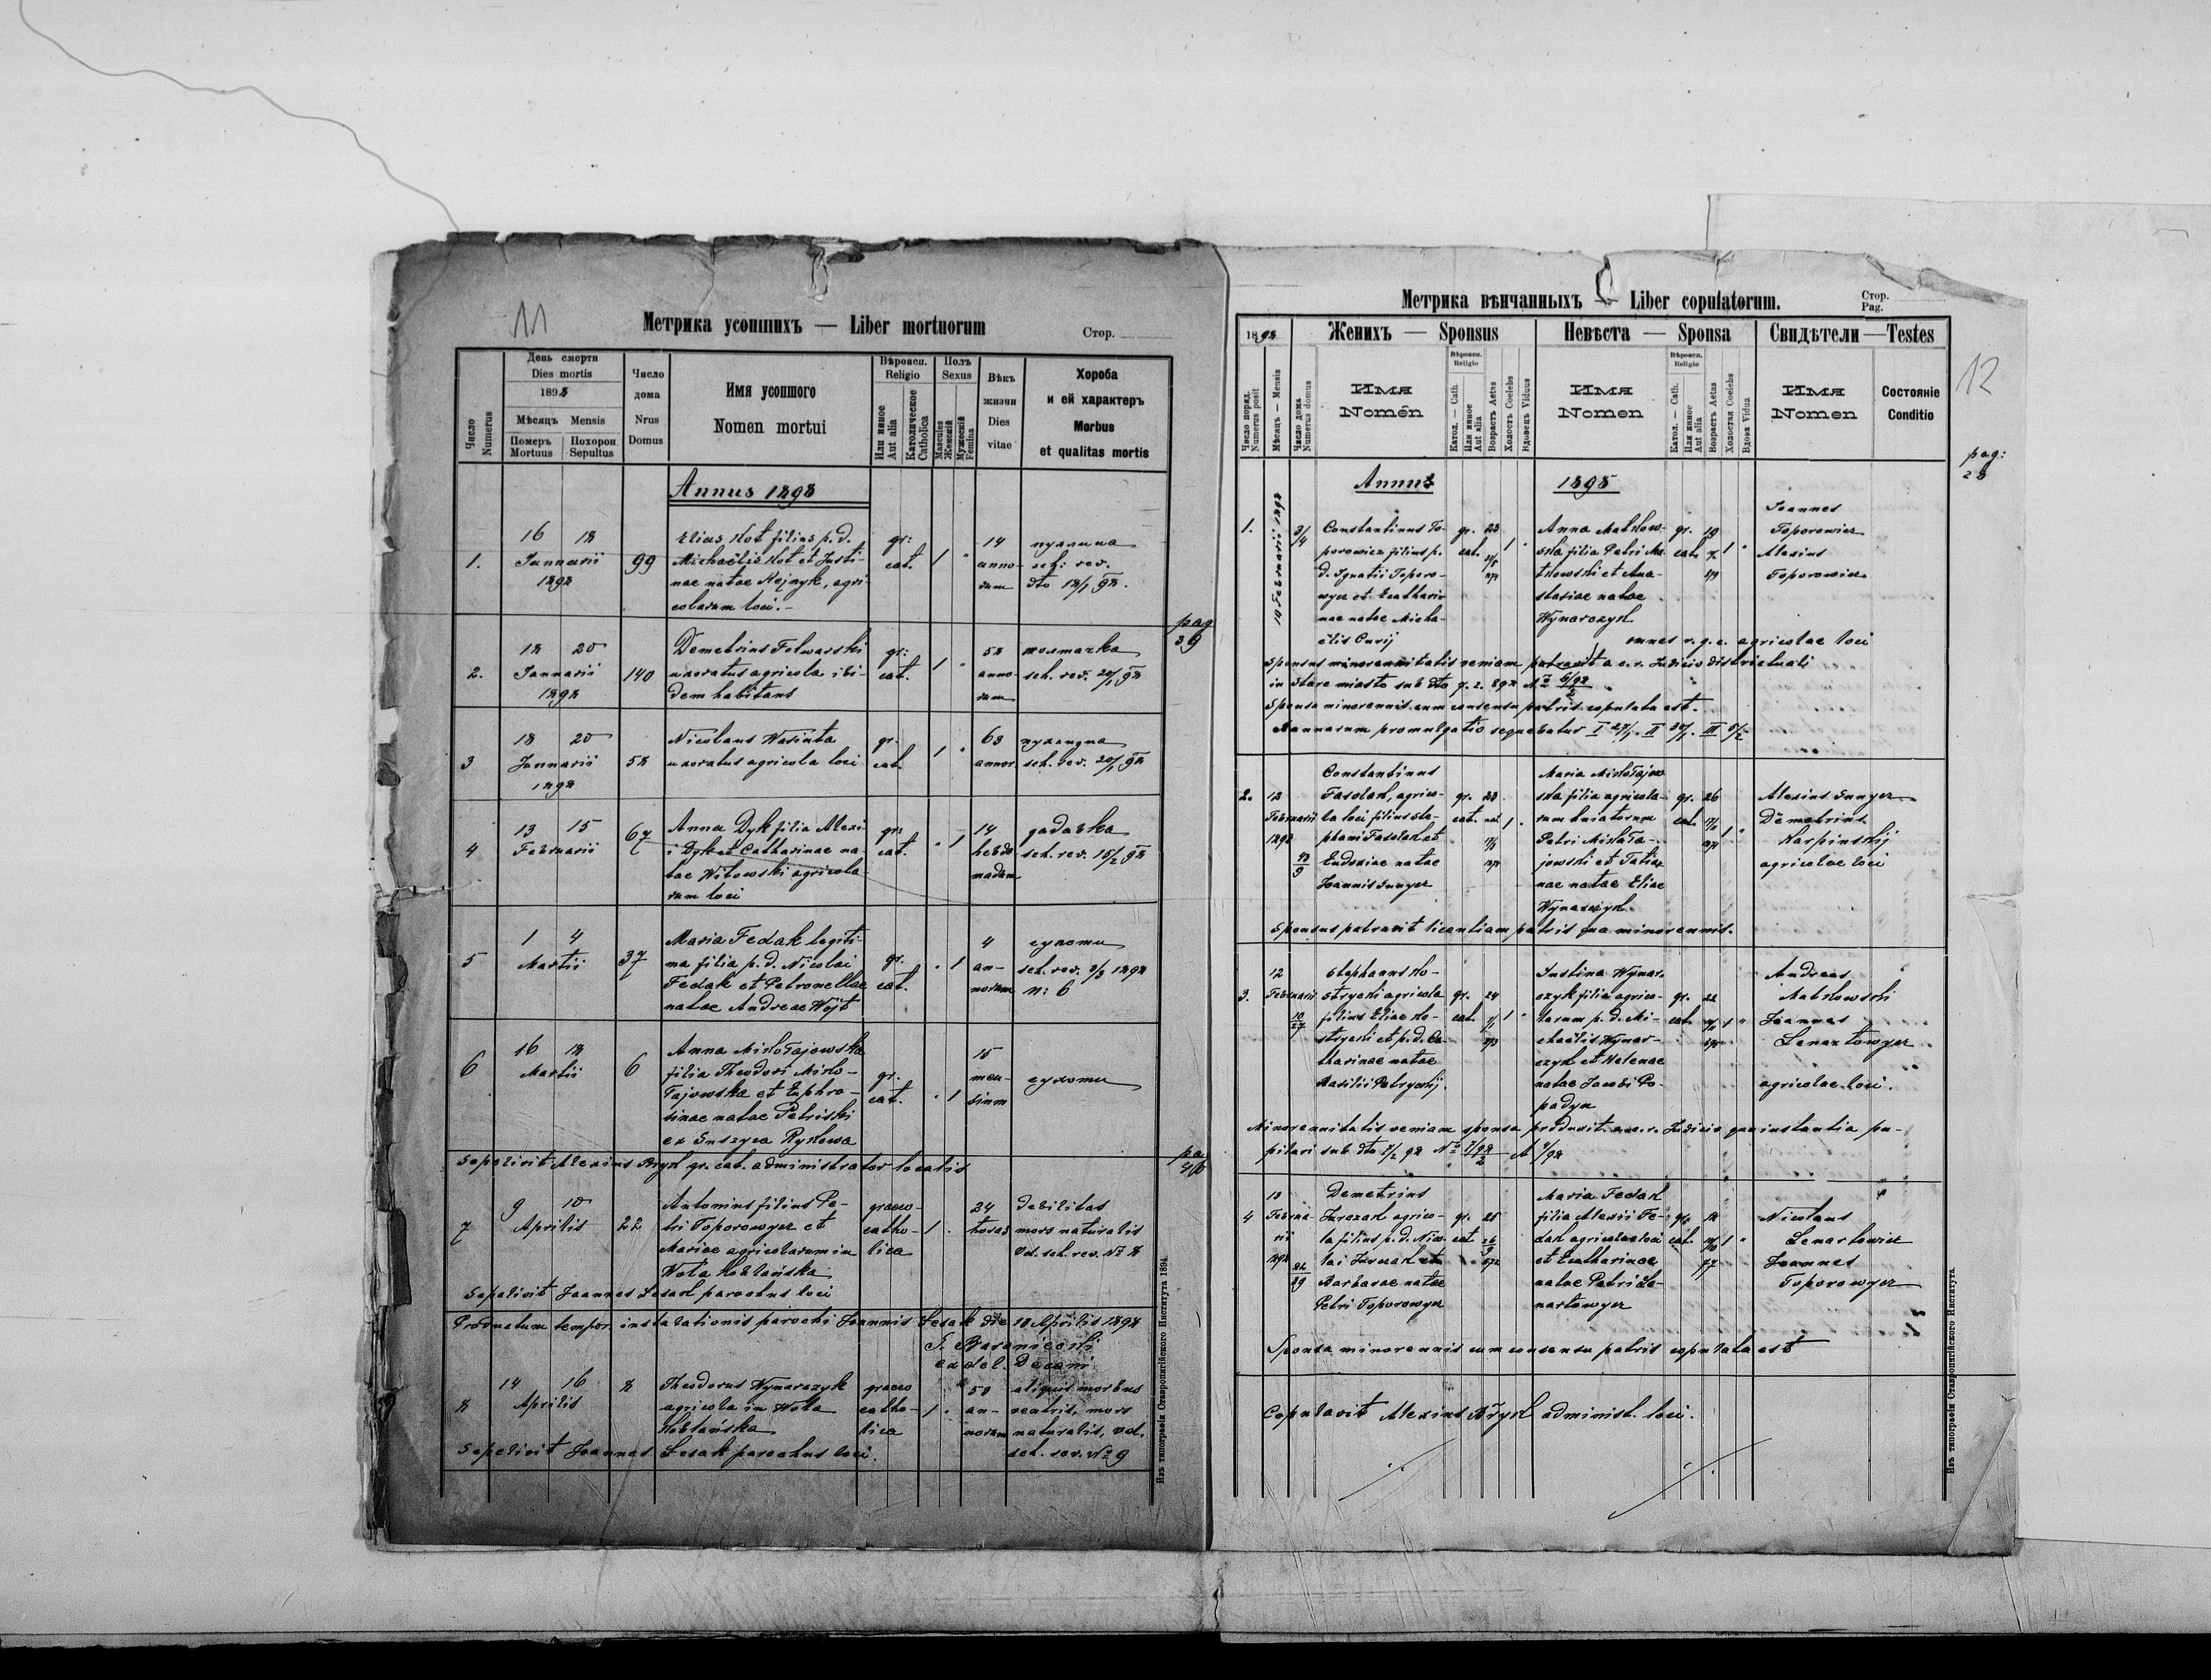 11
Метрика усопшихъ — Liber mortuorum
Стор.
Число
Numerus
День смерти
Dies mortis
1898
Мѣсяцъ Mensis
Померъ
Mortuus
Похорон
Sepultus
Число
дома
Nrus
Domus
Имя усопшого
Nomen mortui
Вѣроисп.
Religio
Или инное
Aut alia
Католическое
Catholica
Полъ
Sexus
Mascules
Женскій
Мужескій
Femina
Вѣкъ
жизни
Dies
vitae
Хороба
и ей характеръ
Morbus
et qualitas mortis
Annus 1898
1.
16 18
Januarii
1898
99
Elias Kot filius p. d.
Michaëlis Kot et Justi-
nae natae Hejnyk, agri-
colarum loci.-
gr:
cat.
1 "
14
anno-
rum
пухлина
sch: rev.
dto 18/1 98.
pag
39
2.
18 20
Januarii
1898
140
Demetrius Folwarski
uxoratus agricola ibi-
dem habitans
gr:
cat.
1 "
58
anno-
rum
sch. rev. 20/1 98
3
18 20
Januarii
1898
58
Nicolaus Wasiuta
uxoratus agricola loci
gr.
cat.
1 "
63
annor.
sch. rev. 20/1 98
4
13 15
Februarii
67
Anna Dyk filia Alexi-
i Dyk et Catharinae na-
tae Witowski agricola-
rum loci
gr:
cat.
" 1
14
hebdo-
madum
sch. rev. 15/2 98
5
1 4
Martii
37
Maria Fedak legiti-
ma filia p. d. Nicolai
Fedak et Petronellae
natae Andreae Wojt
gr.
cat.
. 1
4
an-
norum
сухоти
sch. rev. 3/3 1898
N: 6
6
16 18
Martii
6
Anna Mikołajowska
filia Theodori Miko-
łajowska et Euphro-
sinae natae Petriski
ex Suszyca Rykowa
gr.
cat.
. 1
15
men-
sium
сухоти
Sepelivit Alexius Bryk gr. cat. administrator localis
pa
40
7
9 10
Aprilis
22
Antonius filius Pe-
tri Toporowycz et
Mariae agricolarum in
Wola Koblańska
graeco-
catho-
lica
1 .
24
horas
debilitas
mors naturalis
Vd. sch. rev. № 8
Sepelivit Joannes Lesak parochus loci
Productum tempor. instalationis parochi Joannis Lesak die 18 Aprilis 1898
ex del. Decani
8
14 16
Aprilis
8
Theodorus Wynarczyk
agricola in Wola
Koblańska
graeco
catho-
lica
1 .
58
an-
norum
aliquis morbus
ventris, mors
naturalis, vd.
sch. rev. № 9
Sepelivit Joannes Lesak parochus loci.
Изъ типографіи Ставропигійского Института 1894.
Метрика вѣнчанныхъ — Liber copulatorum.
Стор.
Pag.
12
1898
Женихъ — Sponsus
Невѣста — Sponsa
Свидѣтели — Testes
Число поряд.
Numerus posit
Мѣсяцъ — Mensis
Число дома
Numerus domus
Имя
Nomen
Вѣроисп.
Religio
Катол. — Cath.
Или инное
Aut alia
Возрастъ Aetas
Холостъ Coelebs
Вдовецъ Viduus
Имя
Nomen
Вѣроисп.
Religio
Катол. — Cath.
Или инное
Aut alia
Возрастъ Aetas
Холостая Coelebs
Вдова Vidua
Имя
Nomen
Состояніе
Conditio
pag:
28
Annus 1898
1.
10 Februarii 1898
3/4
Constantinus To-
porowicz filius p.
d. Ignatii Toporo-
wycz et Catharin
nae natae Micha-
ëlis Curij
gr.
cat.
23
1 "
Anna Matkow-
ska filia Petri Ma-
tkowski et Ana-
stasiae natae
Wynarczyk
gr.
cat.
19
1 "
Joannes
Toporowicz
Alexius
Toporowicz
omnes r. g. c. agricolae loci
Sponsus minorennitatis veniam patravit a c. r. Judicio districtuali
in Stare miasto sub dto
Sponsa minorennis cum consensu patris copulata est.
Bannarum promulgatio sequebatur I 27/1. II 30/1. III 6/2
2.
12
Februarii
1898
Constantinus
Fasolak, agrico-
la loci filius Ste-
phani Fasolak et
Eudoxiae natae
Joannis Sunyez
gr.
cat.
23
nat
1 .
Maria Mikołajow
ska filia agricola-
rum
Petri Mikoła-
jowski et Tatia-
nae natae Eliae
Wynarczyk.
gr.
cat.
26
1 "
Alexius Sunyez
Demetrius
Karpinskij
agricolae loci
Sponsus patravit licentiam patris qua minorennis.
3.
12
Februarii
10/27
Stephanus Ko-
stryski agricola
filius Eliae Ko-
stryski et p. d. Ca-
tharinae natae
Basilii Petryckij.
gr.
cat.
24
1 "
Justina Wynar-
czyk filia agrico-
larum p. d. Mi-
chaëlis Wynar-
czyk et Helenae
natae Jacobi Po-
padyn
gr.
cat.
22
1 "
Andreas
Matkowski
Joannes
Lenartowycz
agricolae loci.
Minorennitatis veniam sponsa produxit a c. r. Judicio qua instantia pu-
pilari sub dto
4
13
Februa-
rii
1898
Demetrius
Jurczak agrico-
la filius p. d. Nico-
lai Jurczak et
Barbarae natae
Petri Toporowycz
gr.
cat.
25
Maria Fedak
filia Alexii Fe-
dak agricolae loci
et Catharinae
natae Petri Le-
nartowycz
gr.
cat.
18
1 "
Nicolaus
Lenartowicz
Joannes
Toporowycz
Sponsa minorennis cum consensu patris copulata est
Copulavit Alexius Bryk administ. loci.
Изъ типографіи Ставропигійского Института.